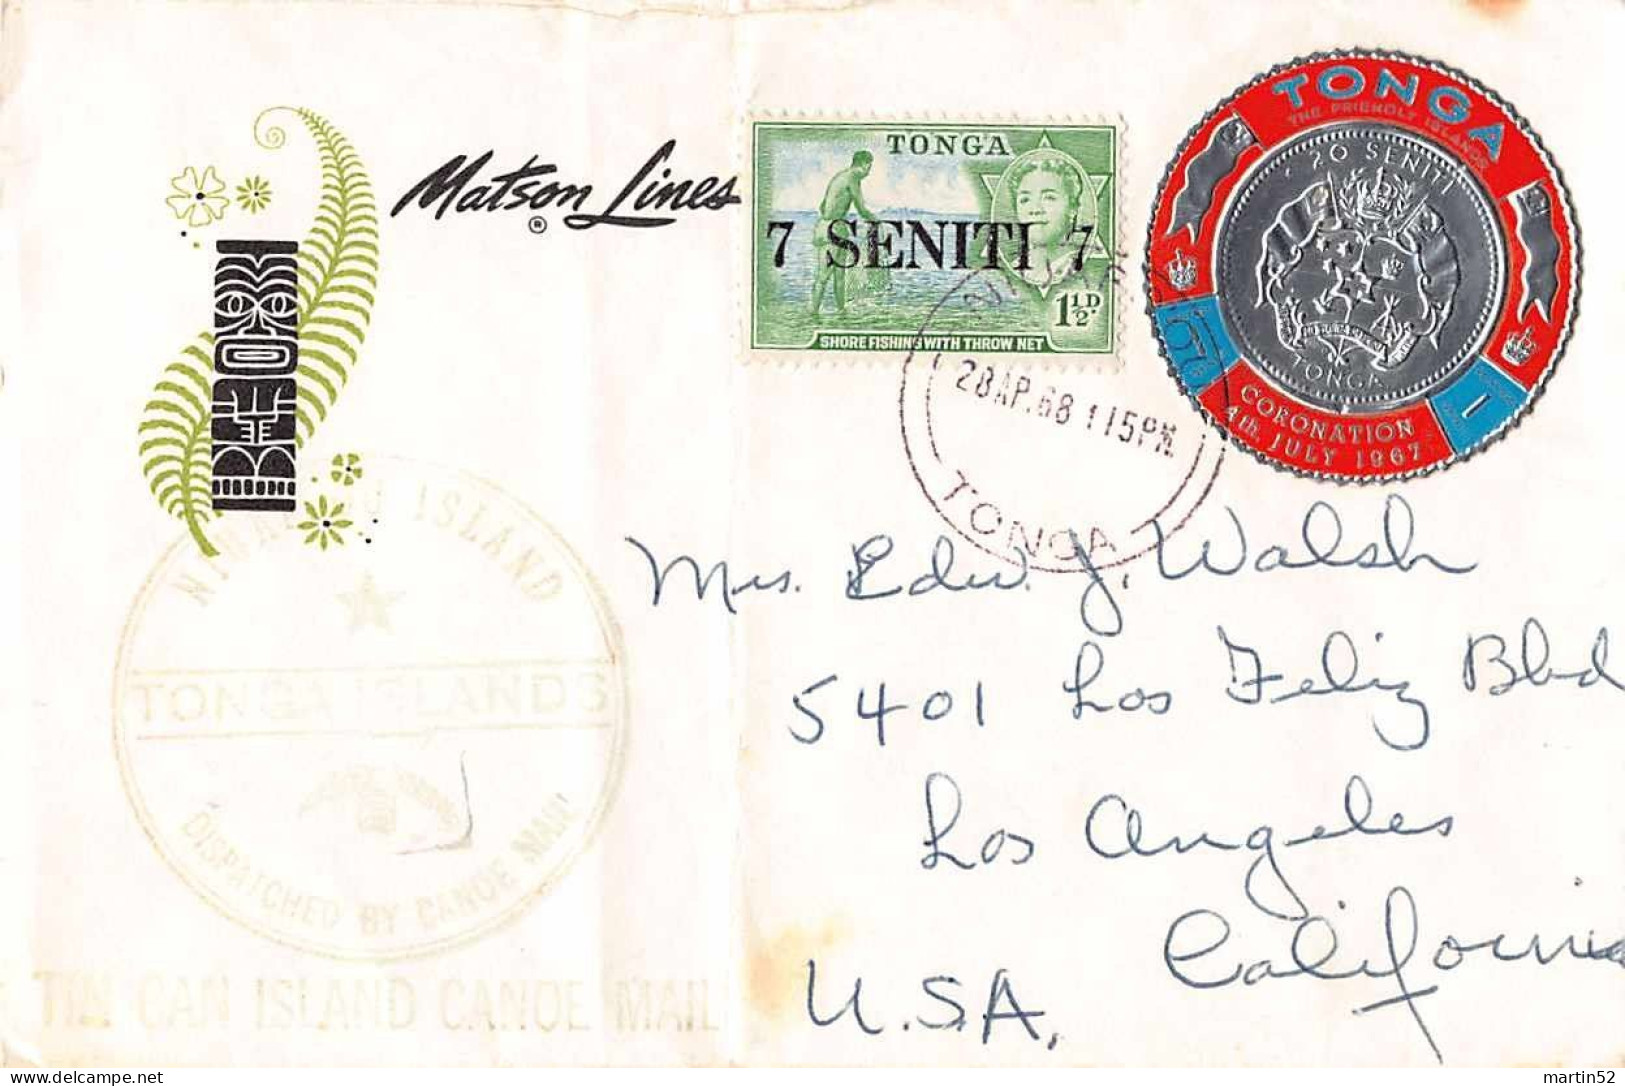 Matson Lines
®
TONGA
7 SENITI 7
1½D.
SHORE FISHING WITH THROW NET
TONGA
THE FRIENDLY ISLANDS
20 SENITI
TONGA
1
CORONATION
4th. JULY 1967
28 AP. 68 115 PM
TONGA
ISLAND
TONGA ISLANDS
DISPATCHED BY CANOE MAIL
TIN CAN ISLAND CANOE MAIL
Mrs. Edw. J. Walsh
5401 Los Feliz Blvd
Los Angeles
California
U.S.A.
martin52